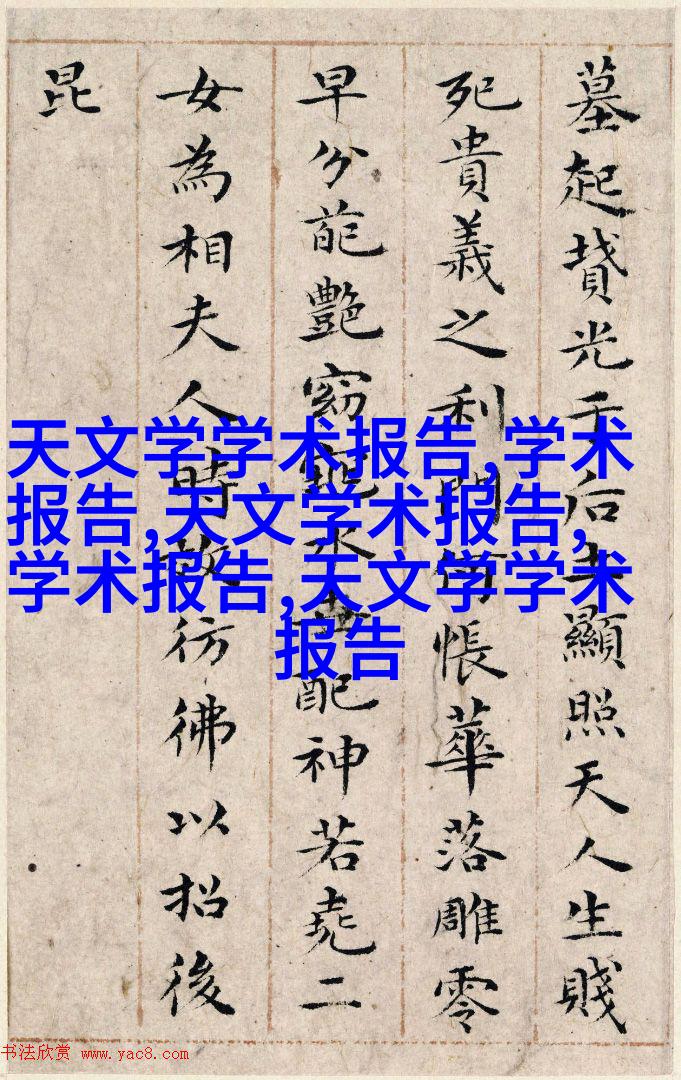 墓起墳光于后土顯照天人生賤
死貴義之利門何帳華落雕零
早分葩艷窈窕永世配神若堯二
女為相夫人時效彷彿以招後
昆
天文学学术报告,学术
报告,天文学术报告,
学术报告,天文学学术
报告
书法欣赏 www.yac8.com